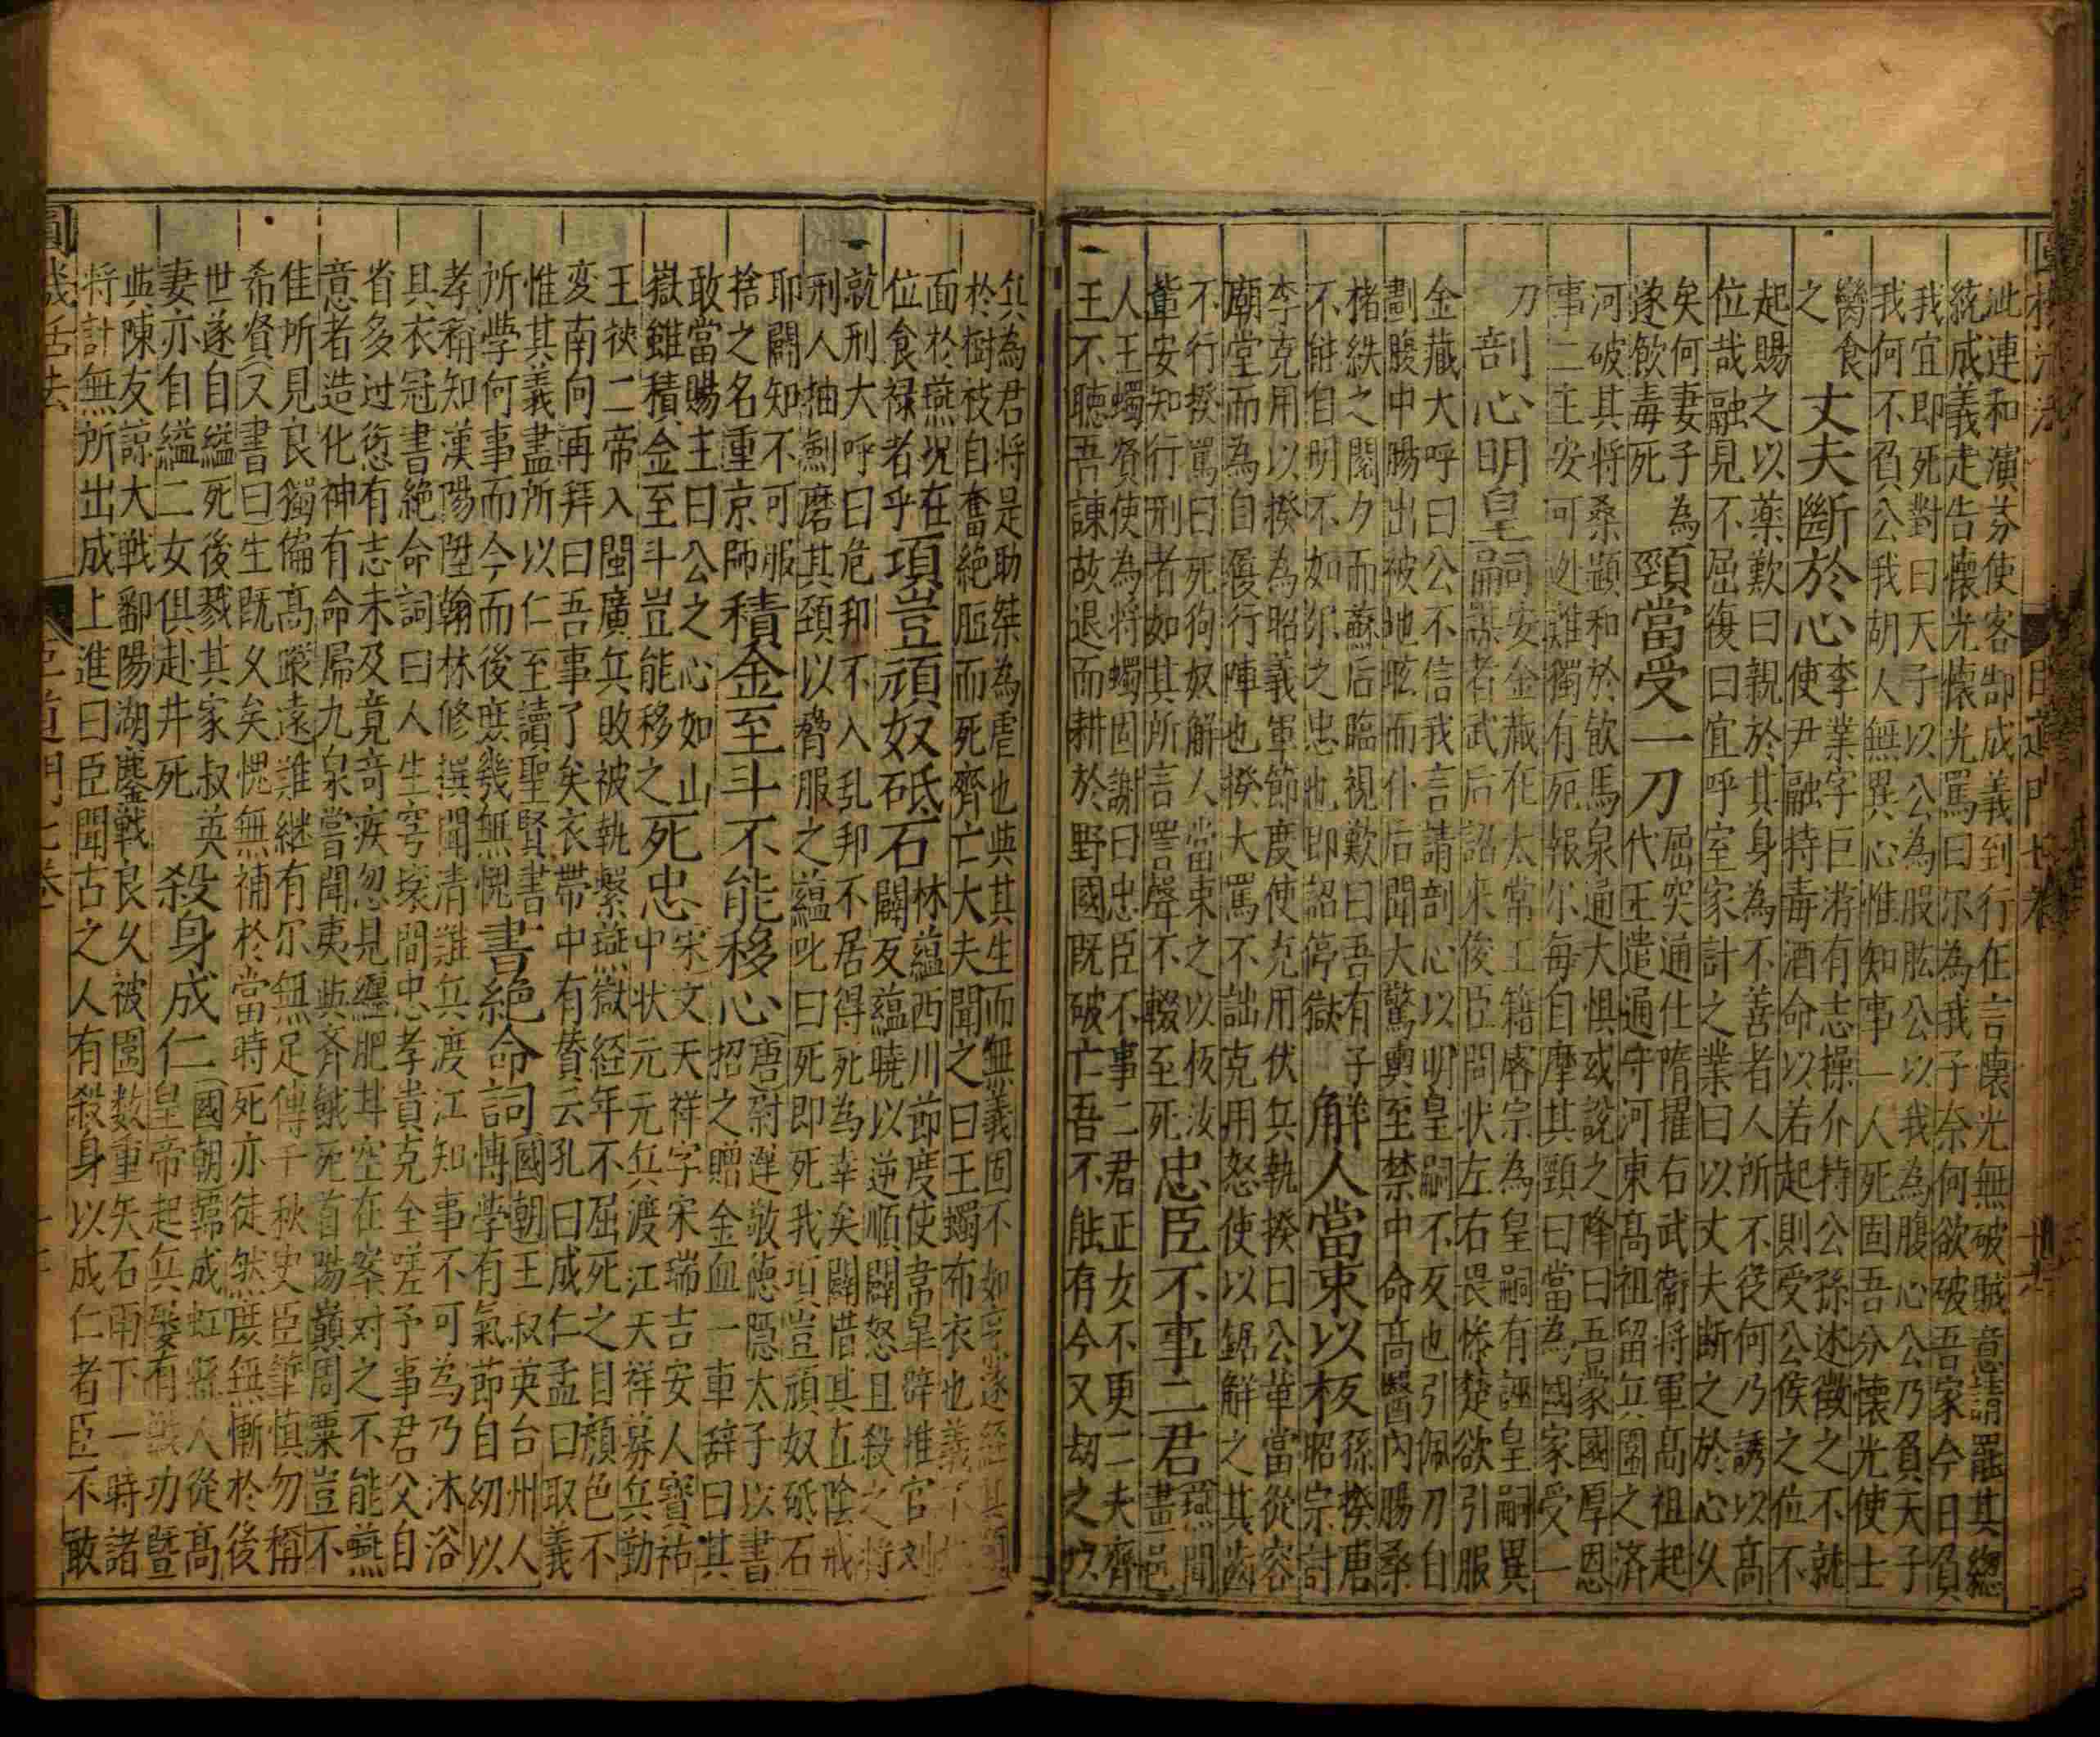 泚連和演芬使客郜成義到行在言懷光無破賊意請罷其總
統成義走告懷光懷光罵曰尔為我子奈何欲破吾家今日負
我宜即死對曰天子以公為股肱公以我為腹心公乃負天子
我何不負公我胡人無異心惟知事一人死固吾分懷光使士
臠食
之
丈夫斷於心
李業字巨游有志操介持公孫述徵之不就
使尹融持毒酒命以若起則受公侯之位不
起賜之以藥歎曰親於其身為不善者人所不從何乃誘以高
位哉融見不屈復曰宜呼室家計之業曰以丈夫断之於心久
矣何妻子為
遂飲毒死
頸當受一刀
屈突通仕隋擢右武衛将軍高祖起
代王遣通守河東高祖留兵圍之済
河破其将桑顯和於飲馬泉通大惧或說之降曰吾蒙國厚恩
事二主安可处難獨有死報尔每自摩其頸曰當為國家受一
刀
剖心明皇嗣
安金蔵在太常工籍睿宗為皇嗣有誣皇嗣異
謀者武后詔来俊臣問状左右畏慘楚欲引服
金蔵大呼曰公不信我言請剖心以明皇嗣不反也引佩刀自
劃腹中腸出被地眩而仆后聞大驚輿至禁中命高醫內腸桑
楮紩之閱夕而蘇后臨視歎曰吾有子
不能自明不如尔之忠也即詔停獄
解人當束以板
孫揆唐
昭宗討
李克用以揆為昭義軍節度使克用伏兵執揆曰公軰當從容
廟堂而為自履行陣也揆大罵不詘克用怒使以鋸解之其齒
不行揆罵曰死狗奴解人當束之以板汝
軰安知行刑者如其所言詈聲不輟至死
忠臣不事二君
燕聞
畫邑
人王蠋賢使為将蠋固謝曰忠臣不事二君正女不更二夫齊
王不聽吾諫故退而耕於野國既破亡吾不能存今又劫之以
兵為君将是助桀為虐也與其生而無義固不如烹遂經其頸
於樹枝自奮絕脰而死齊亡大夫聞之曰王蠋布衣也義不
面於燕况在
位食禄者乎
項豈頑奴砥石
林蘊西川節度使韋皐辟推官刘
闢反蘊暁以逆順闢怒且殺之将
就刑大呼曰危邦不入乱邦不居得死為幸矣闢惜其直陰戒
刑人抽劍磨其頸以脅服之蘊叱曰死即死我項豈頑奴砥石
耶闢知不可服
捨之名重京師
積金至斗不能移心
唐尉遅敬徳隠太子以書
招之贈金血一車辞曰其
敢當賜主曰公之心如山
嶽雖積金至斗豈能移之
死忠
宋文天祥字宋瑞吉安人寶祐
中状元元兵渡江天祥募兵勤
王被二帝入閩廣兵敗被執繫燕獄経年不屈死之目顏色不
变南向再拜曰吾事了矣衣帶中有賛云孔曰成仁孟曰取義
惟其義盡所以仁至讀聖賢書
所學何事而今而後庶幾無愧
書絶命詞
國朝王叔英台州人
博学有氣節自幼以
孝稱知漢陽陞翰林修撰聞清難兵渡江知事不可為乃沐浴
具衣冠書絶命詞曰人生穹壤間忠孝貴克全嗟予事君父自
省多过愆有志未及竟奇疾忽見纏肥甘空在案对之不能嚥
意者造化神有命帰九泉嘗聞夷與齊餓死首陽巔周粟豈不
佳所見良獨偏高蹤遠難継有尔無足傳千秋史臣筆慎勿稱
希賢又書曰生既久矣愧無補於當時死亦徒然庶無慚於後
世遂自縊死後戮其家叔英
妻亦自縊二女俱赴井死
殺身成仁
國朝韓成虹縣人從高
皇帝起兵屢有戰功暨
與陳友諒大戦鄱陽湖鏖戟良久被圍数重矢石雨下一時諸
将計無所出成上進曰臣聞古之人有殺身以成仁者臣不敢